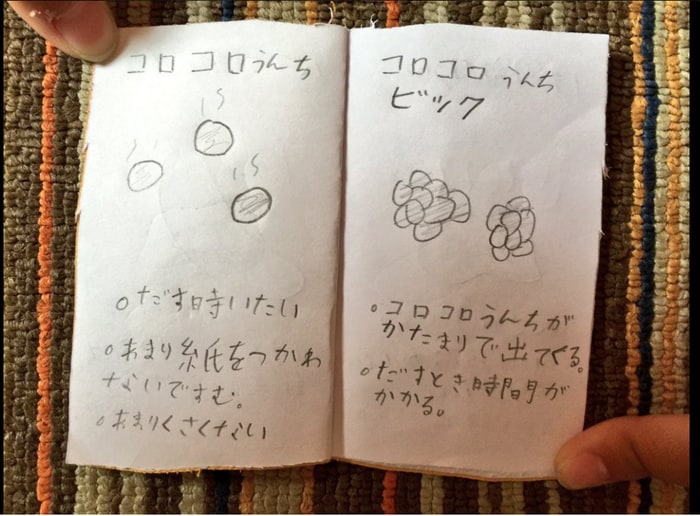 コロコロうんち
○だす時いたい
○あまり紙をつかわ
ないですむ。
○あまりくさくない
コロコロうんち
ビック
○コロコロうんちが
かたまりで出てくる。
○だすとき時間が
かかる。